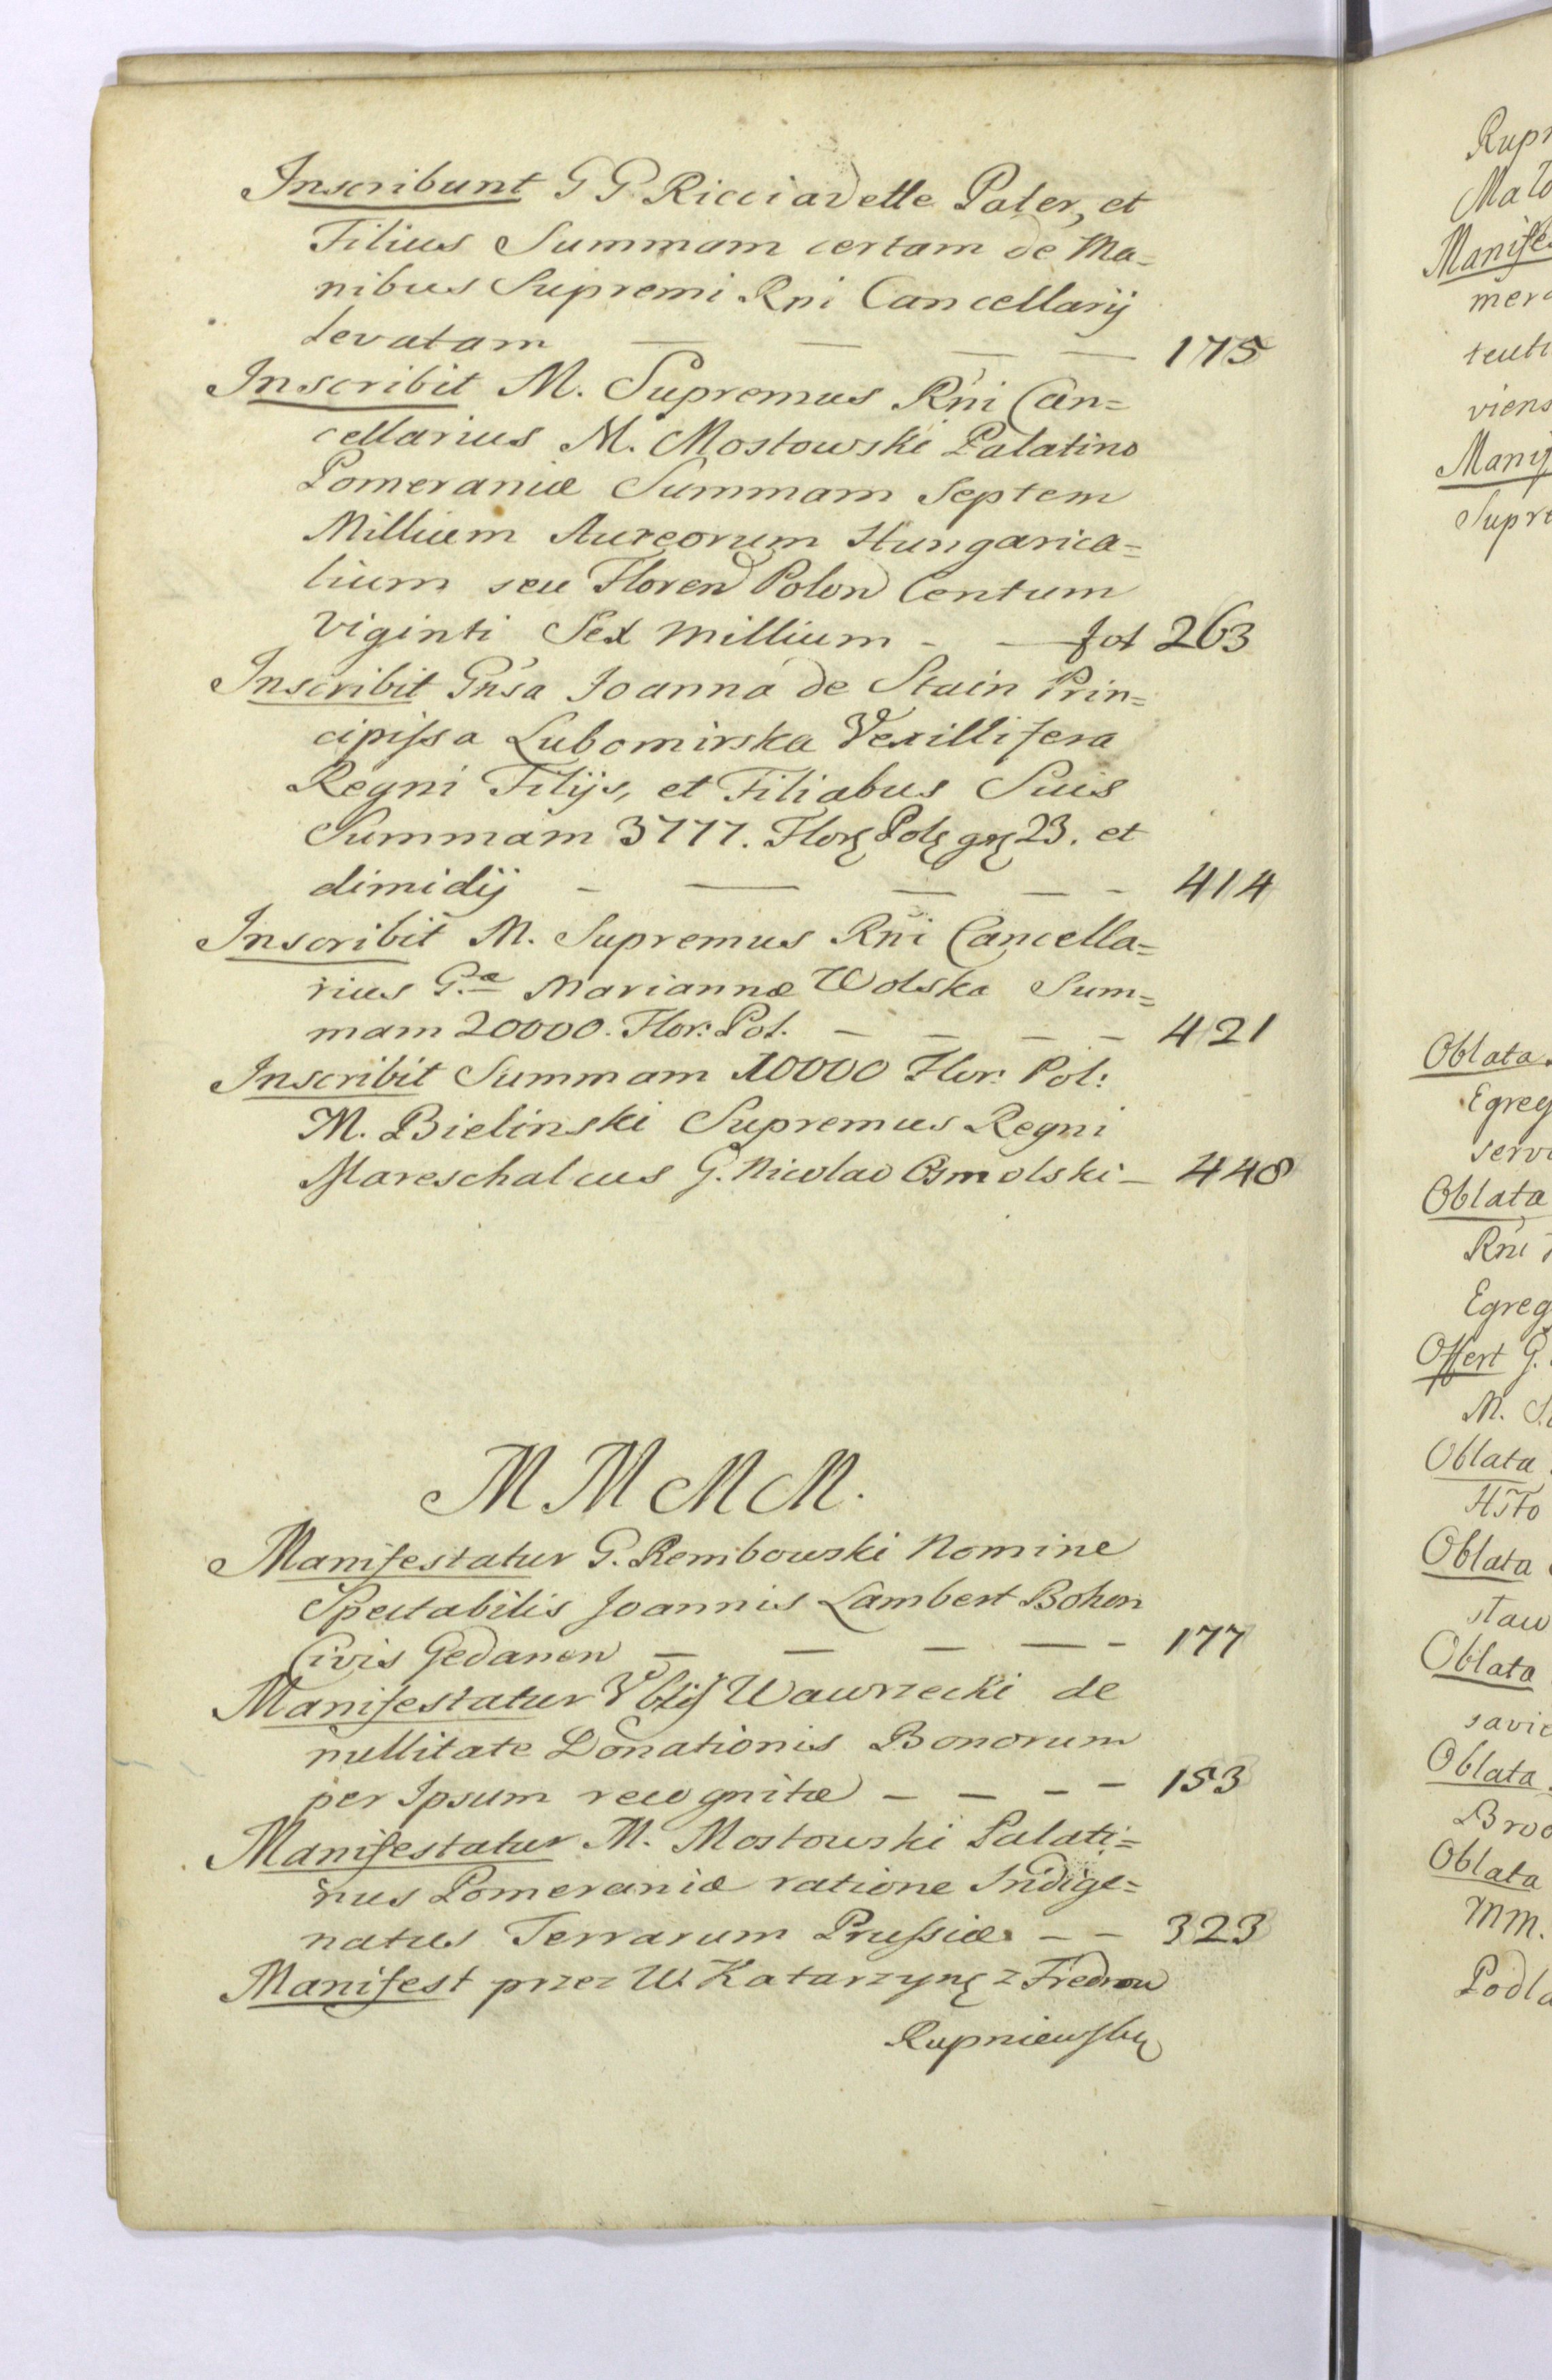 Inscribunt G G. Ricciardette Pater, et
Filius Summam certam de Ma=
nibus Supremi Rni Cancellarij
levatam — — — — 175
Inscribit M. Supremus Rni Can=
cellarius M. Mostowski Palatino
Pomeraniæ Summam Septem
Millium Aureorum Hungarica=
lium seu Floren Polon Centum
Viginti Sex millium - — fol 263
Inscribit Gnsa Joanna de Stain Prin=
cipissa Lubomirska Vexillifera
Regni Filijs, et Filiabus Suis
Summam 3777. Flor Pol gr 23. et
dimidij - — — — - 414
Inscribit M. Supremus Rni Cancella=
rius G.æ Mariannæ Wolska Sum=
mam 20000. Flor: Pol. — — — - 421
Inscribit Summam 10000 Flor: Pol:
M. Bielinski Supremus Regni
Mareschalcus G. Nicolao Osmolski — 448
M M M M.
Manifestatur G. Rembowski Nomine
Spectabilis Joannis Lambert Bohon
Civis Gedanen — — — — - 177
Manifestatur Wawrzecki de
nullitate Donationis Bonorum
per Ipsum recognitæ — — — — 153
Manifestatur M. Mostowski Palati=
nus Pomeraniæ ratione Indige=
natus Terrarum Prussiæ. — — 323
Manifest przez W. Katarzynę z Fredrow
Rupniewską
Rupn
Manife
Manif
Supre
Oblata
Egreg
serv
Oblata
Rni
Egreg
Offert G.
M. S
Oblata
Oblata
staw
Oblata
savie
Oblata
Oblata
MM.
Podla